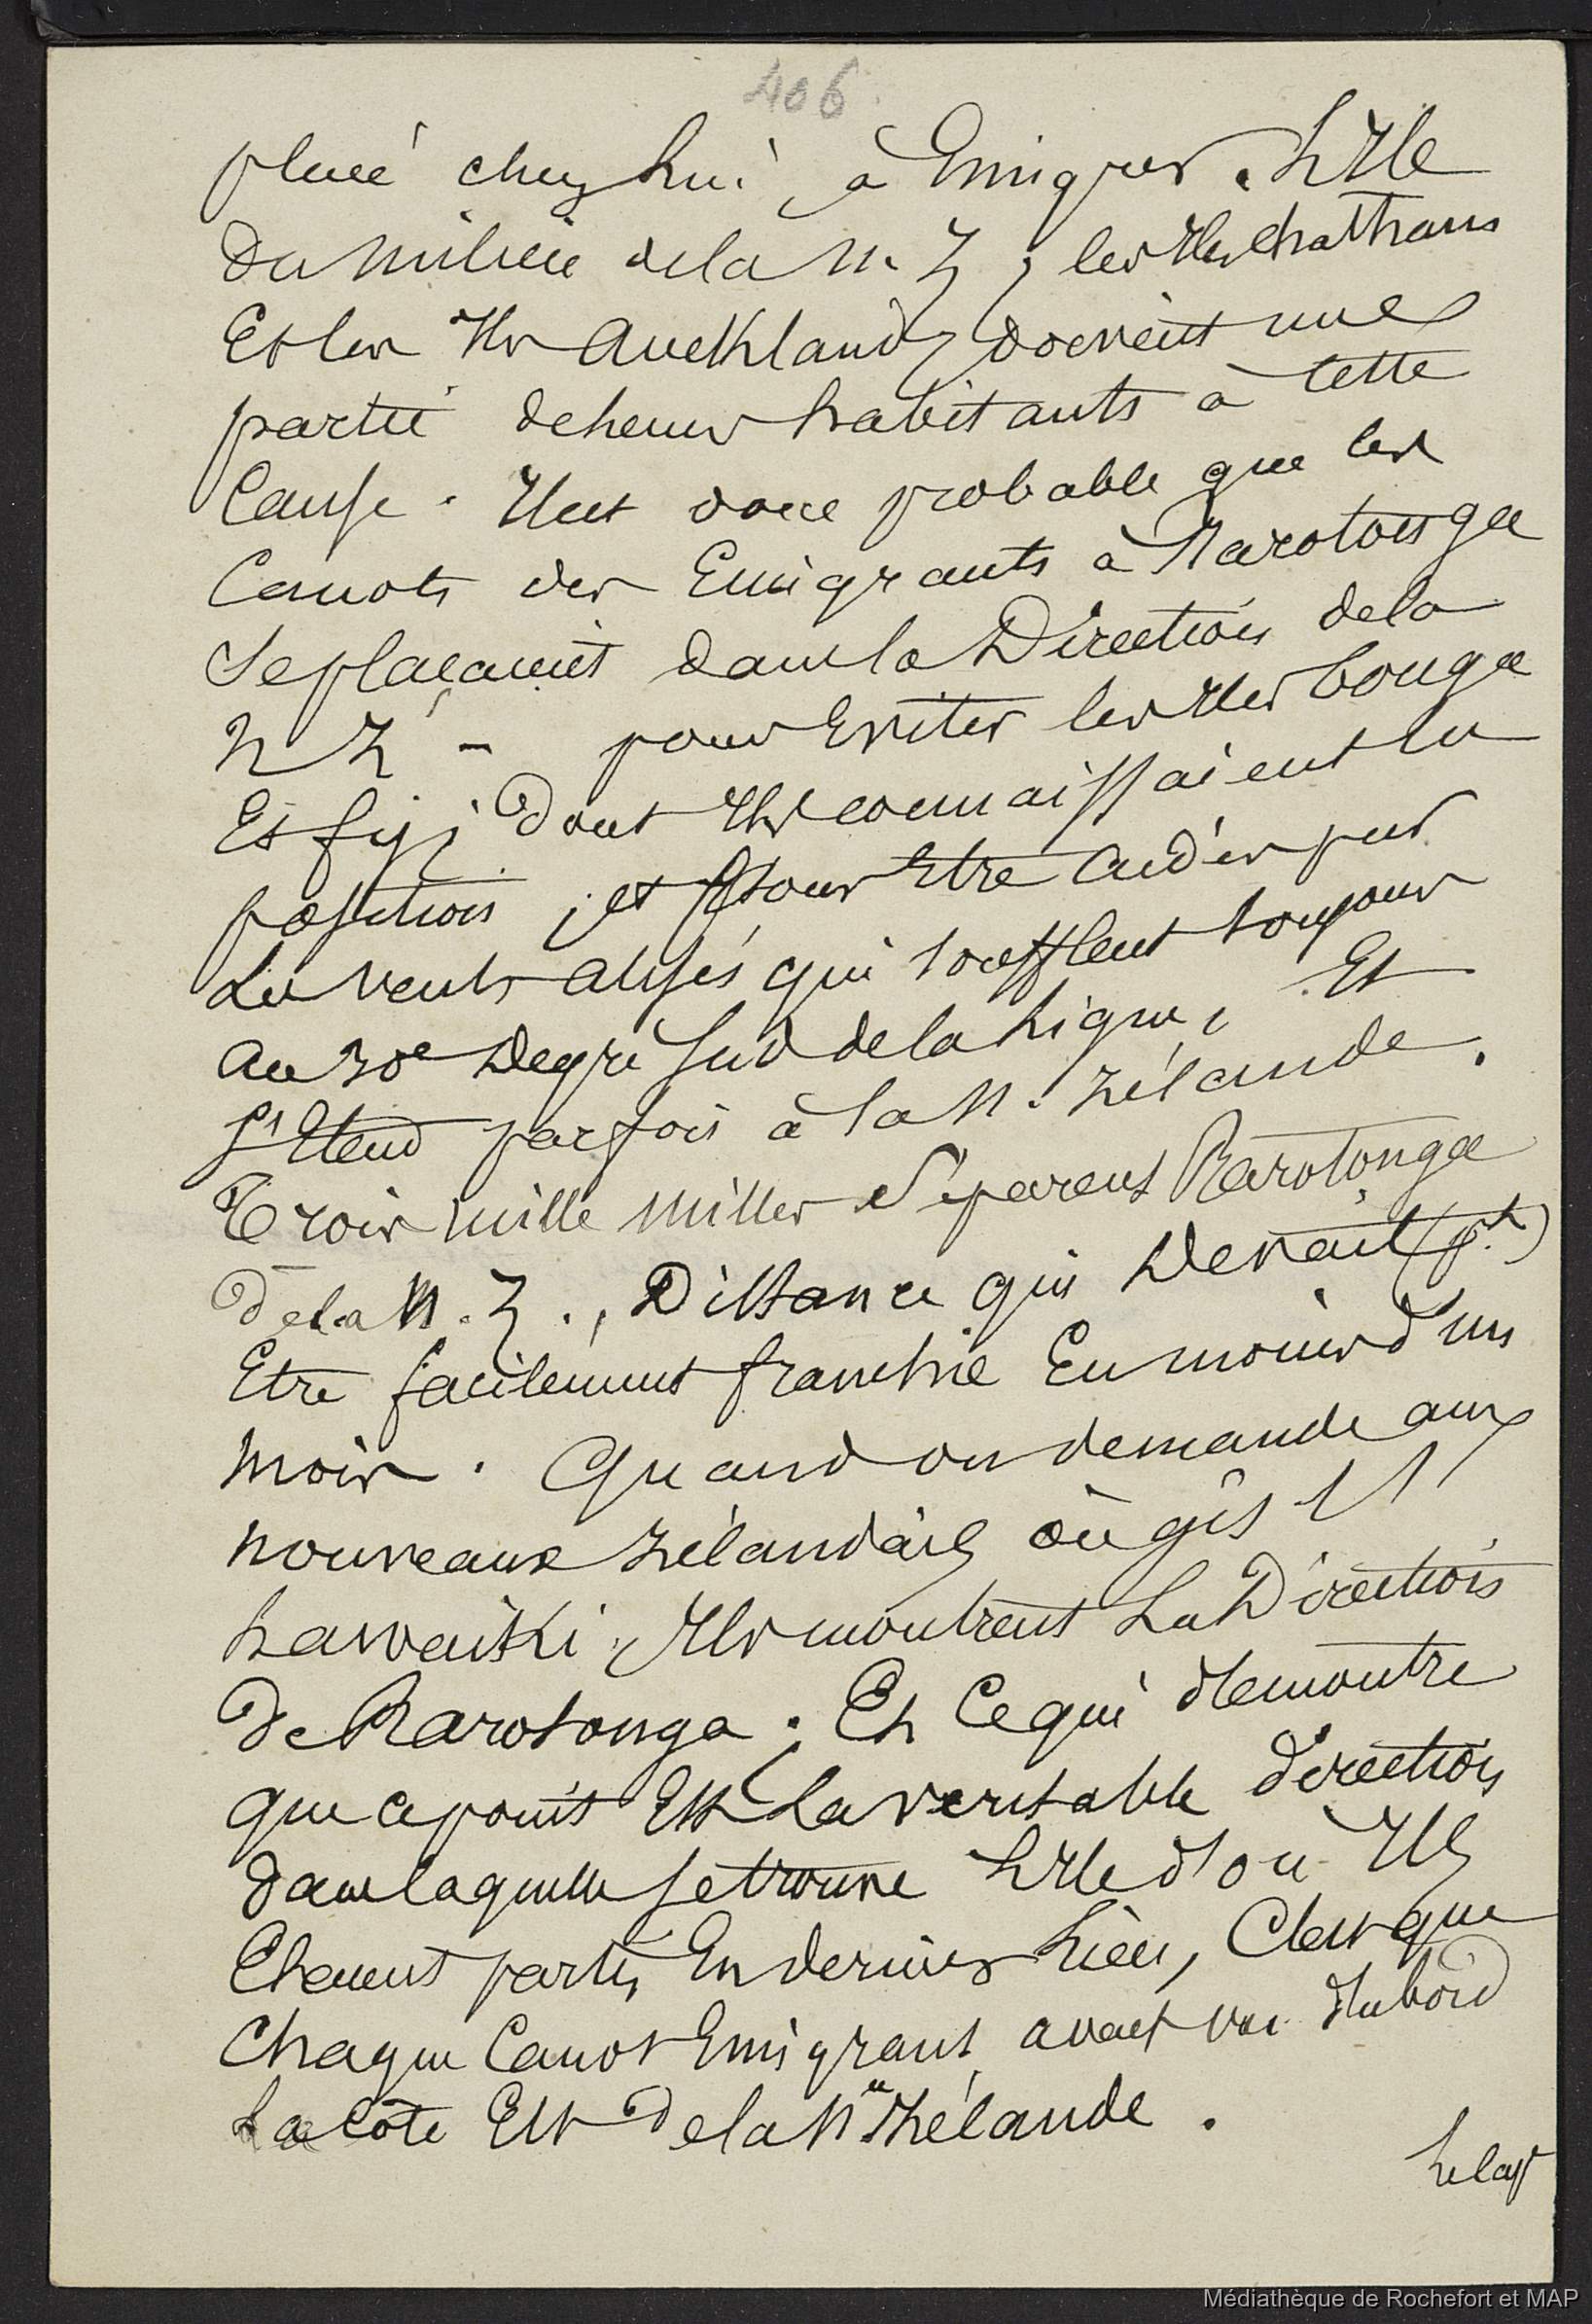 406
placé chez lui, à Emigrer. L'Ile
du milieu de la N. Z ; les Iles chathams
Et les Iles Auckland, doivent une
partie de leurs habitants à cette
Cause. Il est donc probable que les
Canots des Emigrants à Rarotonga
se plaçaient dans la Direction de la
N Z - pour Eviter les Iles Tonga
Et fiji dont Ils connaissaient la
position ; et pour Etre aidés par
Les vents alisés qui soufflent toujours
au 30e Degré sud de la Ligne, Et
s'Etend parfois à la N. Zélande.
Trois mille milles séparent Rarotonga
de la N. Z., Distance qui Devait (pt)
Etre facilement franchie En moins d'un
mois. Quand on demande aux
nouveaux Zélandais où gît
hawaiki, Ils montrent La Direction
de Rarotonga ; Et ce qui demontre
que ce point Est La veritable direction
dans laquelle se trouve L'Ile d'où Ils
Etaient partis En dernier Lieu, C'est que
chaque Canot Emigrant avait vu d'abord
La côte Est de la Nlle Zélande.